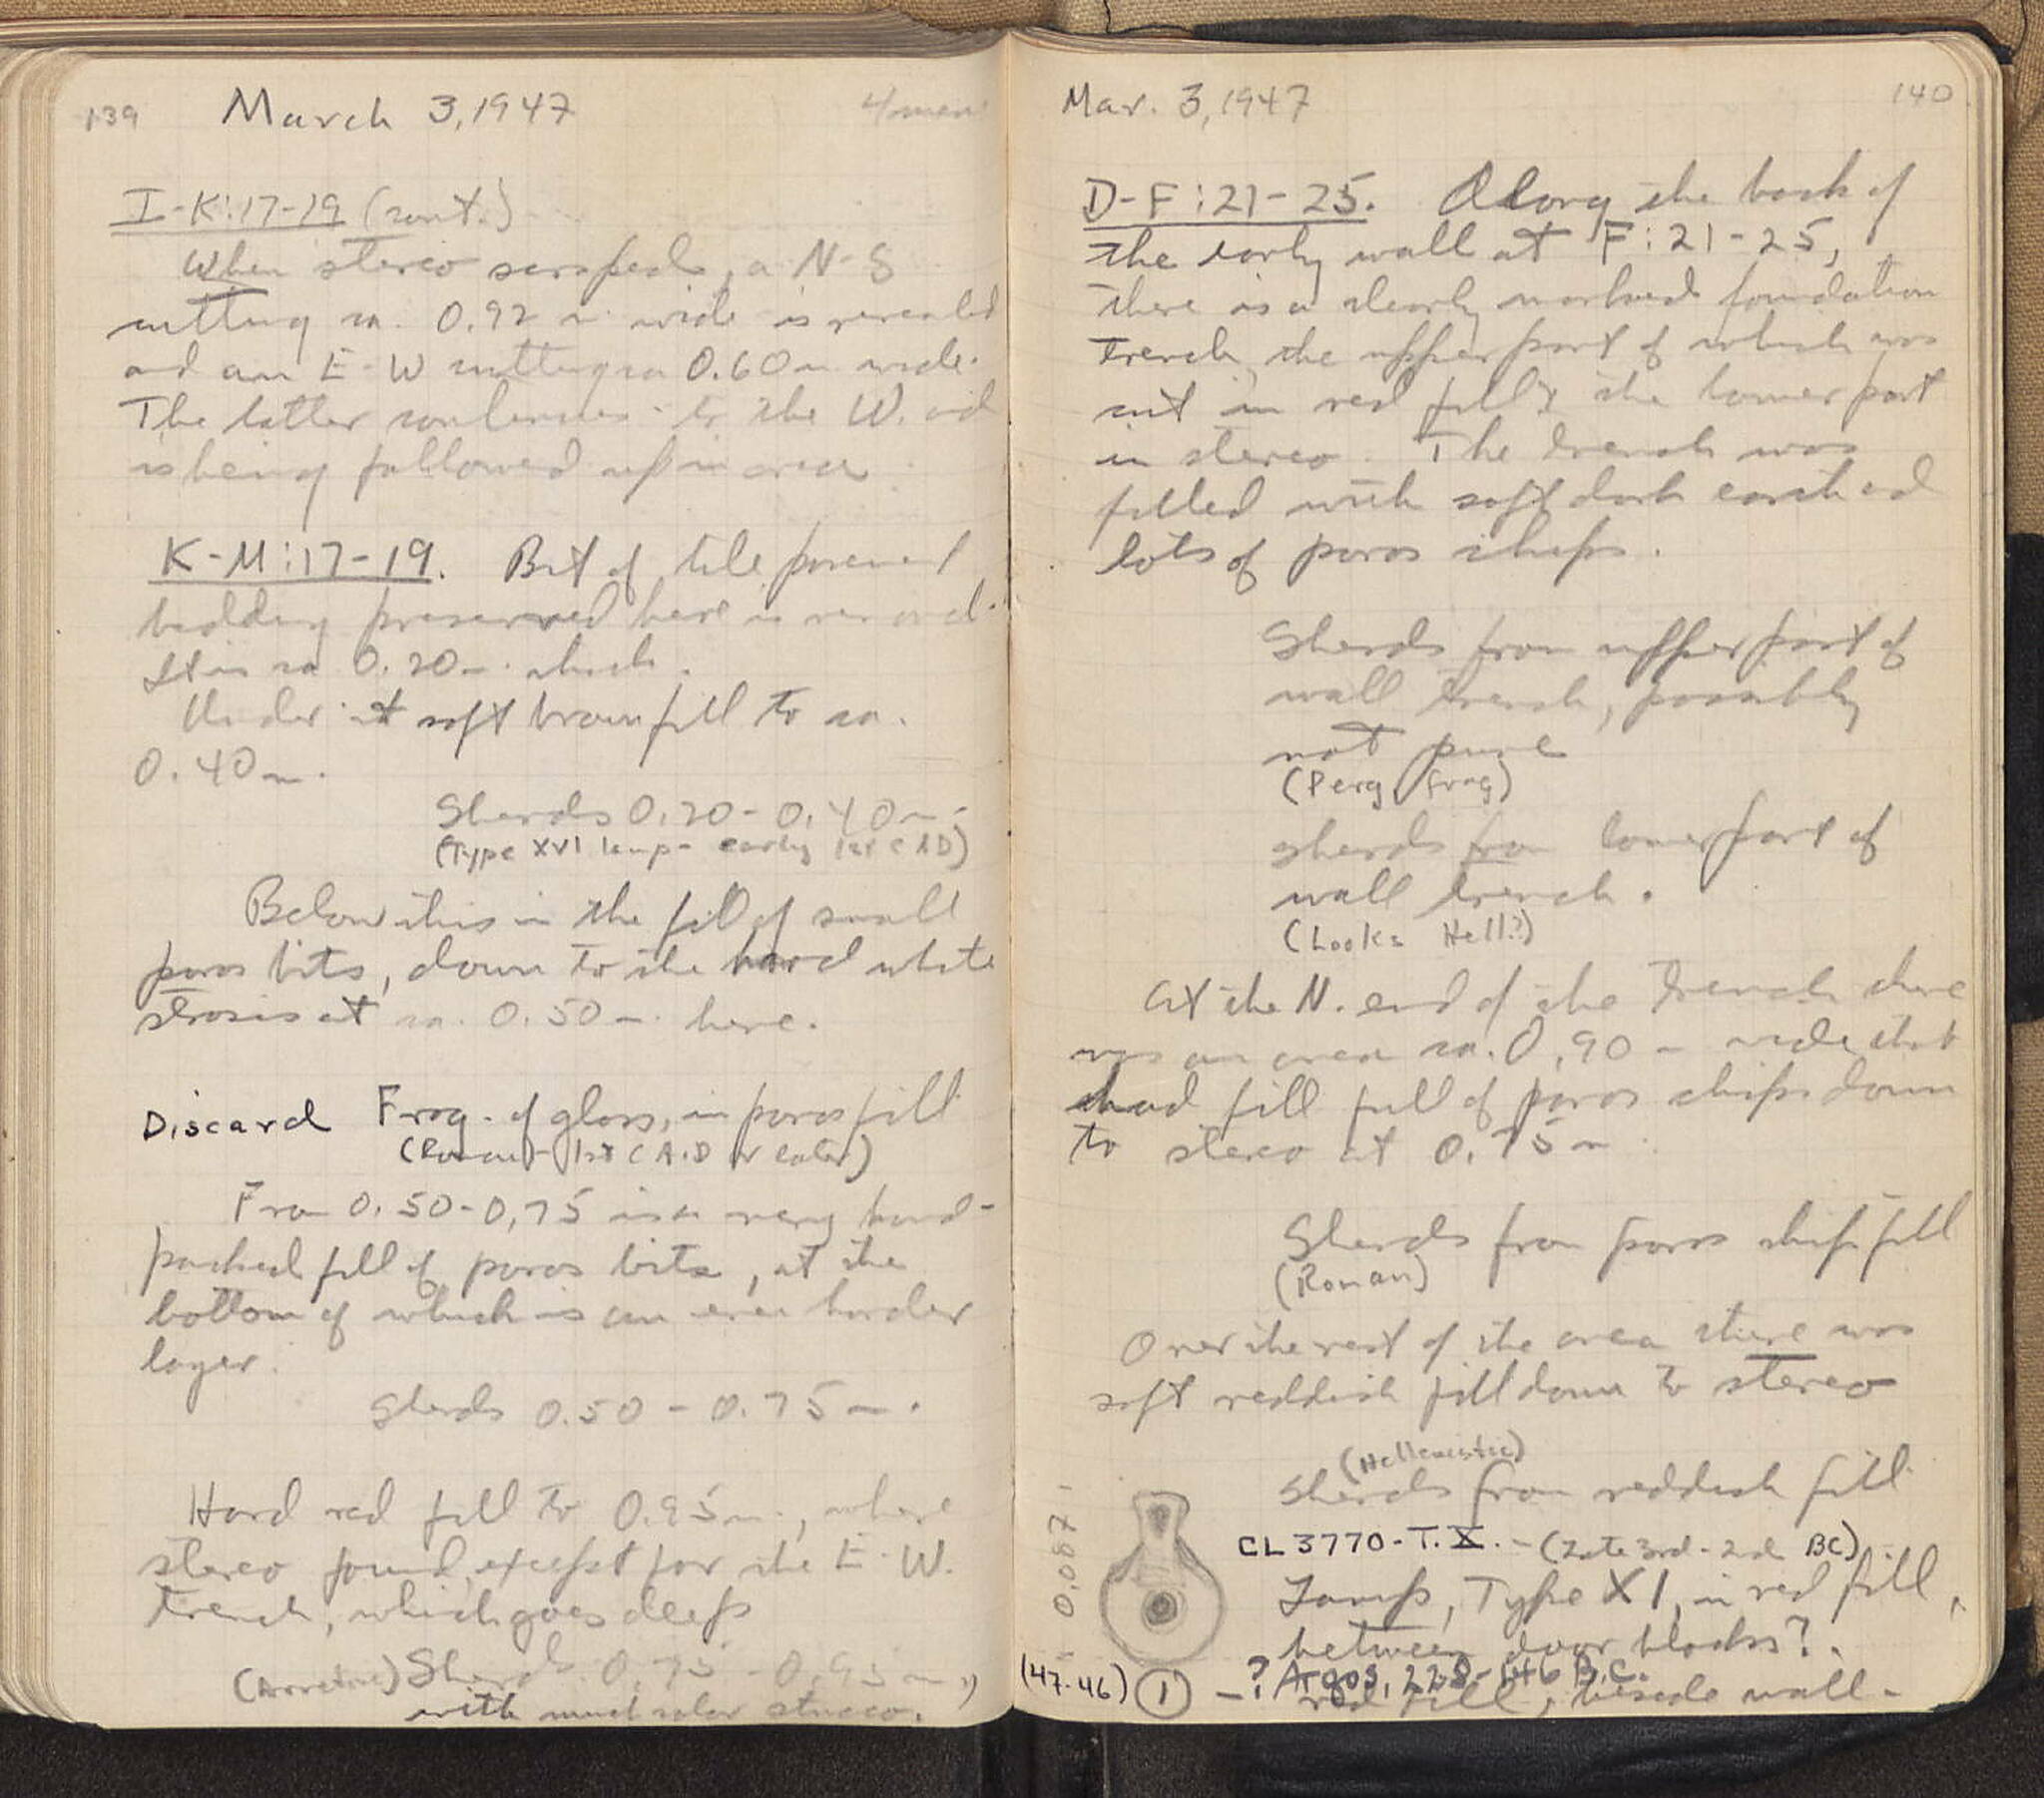 139 March 3, 1947 4 men
I-K:17-19 (cont.)
When stereo scraped, a N-S
cutting ca. 0.92 m wide is revealed
and an E-W cutting ca 0.60 m wide.
The latter continues to the W. and
is being followed up in area
K-M:17-19. Bit of tile pavement
bedding preserved here is removed.
It is ca 0.20 m. thick.
Under it soft brown fill to ca.
0.40 m.
Sherds 0.20-0.40 m.
(Type XVI lamp - early 1st C AD)
Below this is the fill of small
poros bits, down to the hard white
strosis at ca. 0.50 m. here.
Discard Frag. of glass, in poros fill
(Roman - 1st C A.D or later)
From 0.50-0,75 is a very hard-
packed fill of poros bits, at the
bottom of which is an even harder
layer.
Sherds 0.50-0.75 m.
Hard red fill to 0.95 m., where
stereo found, except for the E-W.
trench, which goes deep
(Arretine) Sherds 0.75-0.95 m,
with much color stucco.
Mar. 3, 1947 140
D-F:21-25. Along the back of
the early wall at F:21-25,
there is a clearly marked foundation
trench, the upper part of which was
cut in red fill & the lower part
in stereo. The trench was
filled with soft dark earth and
lots of poros chips.
Sherds from upper part of
wall trench, possibly
not pure
(Perg. frag)
Sherds from lower part of
wall trench.
(Looks Hell?)
At the N. end of the trench there
was an area ca. 0,90 m wide that
had fill full of poros chips down
to stereo at 0.75 m.
Sherds from poros chip fill
(Roman)
Over the rest of the area there was
soft reddish fill down to stereo
(Hellenistic)
Sherds from reddish fill
CL 3770-T.X. - (Late 3rd - 2nd BC)
Lamp, Type XI, in red fill,
between door blocks?.
0.087
(47-46) ① - ? Argos, 228-146 B.C.
red fill, beside wall -